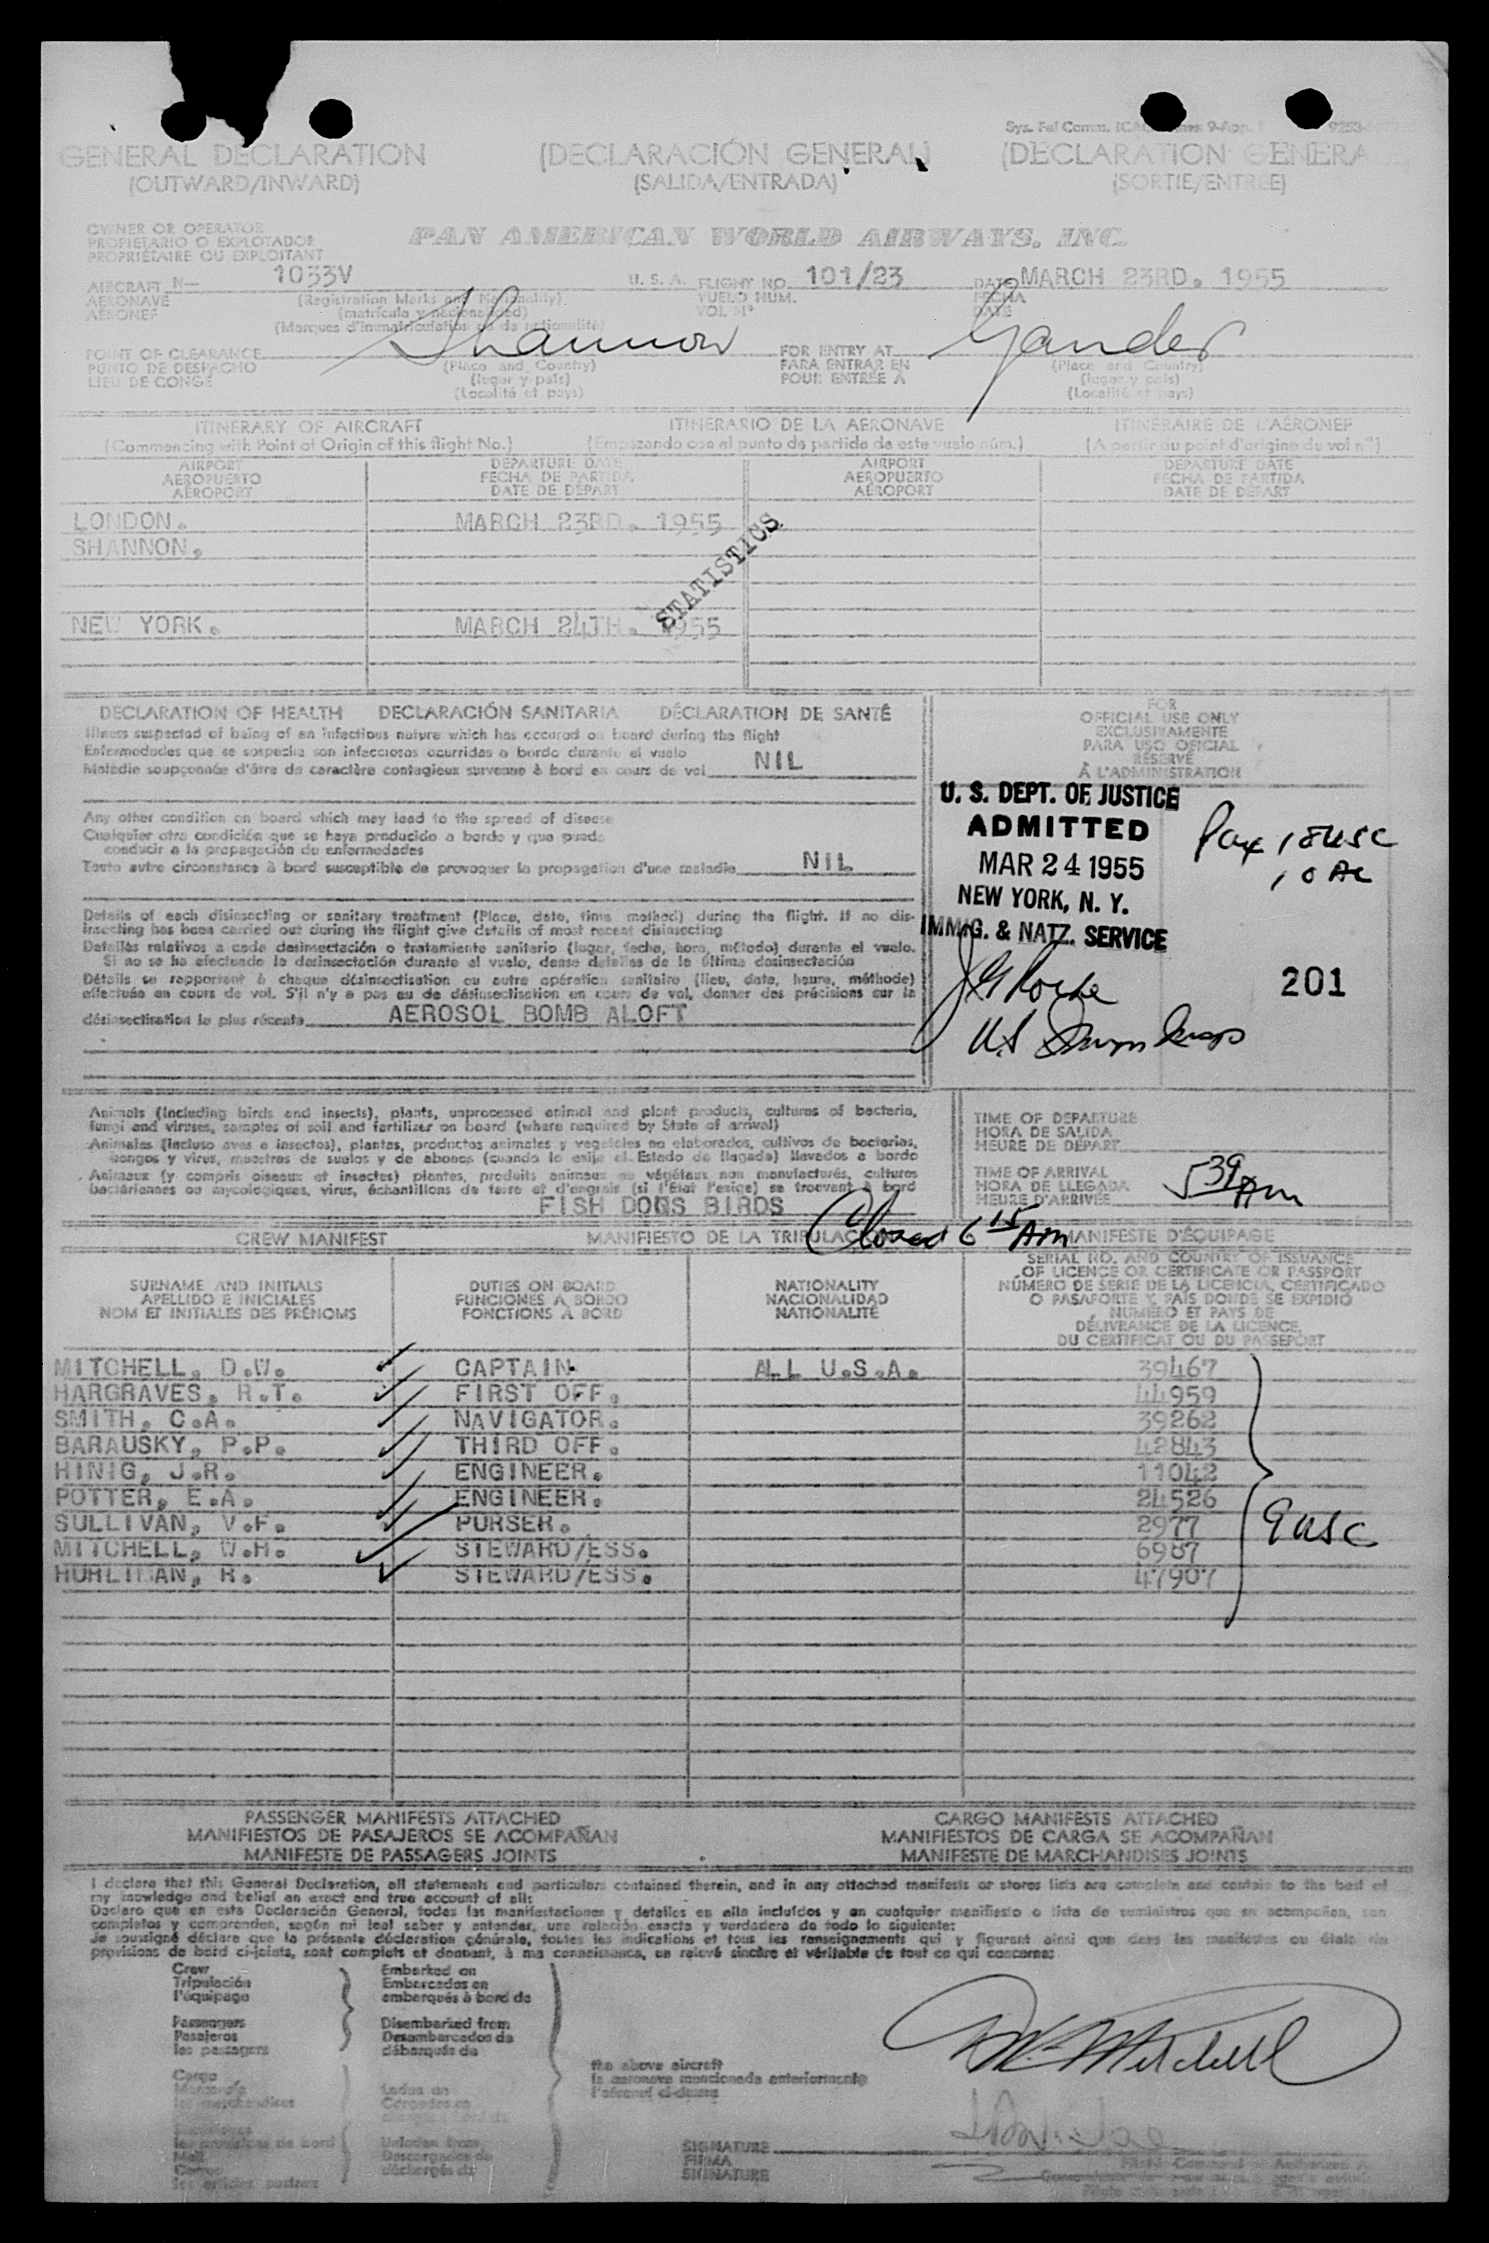 GENERAL DECLARATION (DECLARACIÓN GENERAL) (DECLARATION GENERA
(OUTWARD/INWARD) (SALIDA/ENTRADA) (SORTIE/ENTREE)
OWNER OR OPERATOR
PROPIETARIO O EXPLOTADOR
PROPRIÉTAIRE OU EXPLOITANT
PAN AMERICAN WORLD AIRWAYS, INC.
AIRCRAFT N— 1033V U. S. A. FLIGHT NO. 101/23 DATE MARCH 23RD. 1955
AERONAVE (Registration Marks and Nationality) VUELO NUM. FECHA
AÉRONEF (matrícula y nacionalidad) VOL Nº DATE
(Marques d'immatriculation et de nationalité)
POINT OF CLEARANCE Shannon FOR ENTRY AT Gander
PUNTO DE DESPACHO (Place and Country) PARA ENTRAR EN (Place and Country)
LIEU DE CONGÉ (lugar y país) POUR ENTRÉE À (lugar y país)
(Localité et pays) (Localité et pays)
ITINERARY OF AIRCRAFT ITINERARIO DE LA AERONAVE ITINERAIRE DE L'AÉRONEF
(Commencing with Point of Origin of this flight No.) (Empezando con el punto de partida de este vuelo núm.) (A partir du point d'origine du vol nº)
AIRPORT DEPARTURE DATE AIRPORT DEPARTURE DATE
AEROPUERTO FECHA DE PARTIDA AEROPUERTO FECHA DE PARTIDA
AÉROPORT DATE DE DÉPART AÉROPORT DATE DE DÉPART
LONDON. MARCH 23RD. 1955
SHANNON.
STATISTICS
NEW YORK. MARCH 24TH. 1955
DECLARATION OF HEALTH DECLARACIÓN SANITARIA DÉCLARATION DE SANTÉ
Illness suspected of being of an infectious nature which has occured on board during the flight
Enfermedades que se sospecha son infecciosas ocurridas a bordo durante el vuelo
Maladie soupçonnée d'être de caractère contagieux survenue à bord en cours de vol NIL
Any other condition on board which may lead to the spread of disease
Cualquier otra condición que se haya producido a bordo y que pueda
conducir a la propagación de enfermedades
Toute autre circonstance à bord susceptible de provoquer la propagation d'une maladie NIL
Details of each disinsecting or sanitary treatment (Place, date, time method) during the flight. If no dis-
insecting has been carried out during the flight give details of most recent disinsecting
Detalles relativos a cada desinsectación o tratamiento sanitario (lugar, fecha, hora, método) durante el vuelo.
Si no se ha efectuado la desinsectación durante el vuelo, dense detalles de la última desinsectación
Détails se rapportant à chaque désinsectisation ou autre opération sanitaire (lieu, date, heure, méthode)
effectuée en cours de vol. S'il n'y a pas eu de désinsectisation en cours de vol, donner des précisions sur la
désinsectisation la plus récente AEROSOL BOMB ALOFT
FOR
OFFICIAL USE ONLY
EXCLUSIVAMENTE
PARA USO OFICIAL
RÉSERVÉ
À L'ADMINISTRATION
U. S. DEPT. OF JUSTICE
ADMITTED
MAR 24 1955
NEW YORK, N. Y.
IMMIG. & NATZ. SERVICE
Pax 18 USC
10 AL
201
Animals (including birds and insects), plants, unprocessed animal and plant products, cultures of bacteria,
fungi and viruses, samples of soil and fertilizer on board (where required by State of arrival)
Animales (incluso aves e insectos), plantas, productos animales y vegetales no elaborados, cultivos de bacterias,
hongos y virus, muestras de suelos y de abonos (cuando lo exija el Estado de llegada) llevados a bordo
Animaux (y compris oiseaux et insectes) plantes, produits animaux ou végétaux non manufacturés, cultures
bactériennes ou mycologiques, virus, échantillons de terre et d'engrais (si l'État l'exige) se trouvant à bord
FISH DOGS BIRDS
TIME OF DEPARTURE
HORA DE SALIDA
HEURE DE DÉPART
TIME OF ARRIVAL
HORA DE LLEGADA
HEURE D'ARRIVÉE
5 39 Am
Closed 6 15 Am
CREW MANIFEST MANIFIESTO DE LA TRIPULACIÓN MANIFESTE D'ÉQUIPAGE
SURNAME AND INITIALS DUTIES ON BOARD NATIONALITY
APELLIDO E INICIALES FUNCIONES A BORDO NACIONALIDAD
NOM ET INITIALES DES PRÉNOMS FONCTIONS À BORD NATIONALITÉ
SERIAL NO. AND COUNTRY OF ISSUANCE
OF LICENCE OR CERTIFICATE OR PASSPORT
NÚMERO DE SERIE DE LA LICENCIA, CERTIFICADO
O PASAPORTE Y PAÍS DONDE SE EXPIDIÓ
NUMÉRO ET PAYS DE
DÉLIVRANCE DE LA LICENCE,
DU CERTIFICAT OU DU PASSEPORT
MITCHELL, D.W. CAPTAIN. ALL U.S.A. 39467
HARGRAVES, R.T. FIRST OFF. 44959
SMITH, C.A. NAVIGATOR. 39262
BARAUSKY, P.P. THIRD OFF. 42843
HINIG, J.R. ENGINEER. 11042
POTTER, E.A. ENGINEER. 24526
SULLIVAN, V.F. PURSER. 2977
9 USC
MITCHELL, W.H. STEWARD/ESS. 6987
HURLIMAN, R. STEWARD/ESS. 47907
PASSENGER MANIFESTS ATTACHED CARGO MANIFESTS ATTACHED
MANIFIESTOS DE PASAJEROS SE ACOMPAÑAN MANIFIESTOS DE CARGA SE ACOMPAÑAN
MANIFESTE DE PASSAGERS JOINTS MANIFESTE DE MARCHANDISES JOINTS
I declare that this General Declaration, all statements and particulars contained therein, and in any attached manifests or stores lists are complete and contain to the best of
my knowledge and belief an exact and true account of all:
Declaro que en esta Declaración General, todas las manifestaciones y detalles en ella incluídos y en cualquier manifiesto o lista de suministros que se acompañan, son
completos y comprenden, según mi leal saber y entender, una relación exacta y verdadera de todo lo siguiente:
Je soussigné déclare que la présente déclaration générale, toutes les indications et tous les renseignements qui y figurent ainsi que dans les manifestes ou états de
provisions de bord ci-joints, sont complets et donnent, à ma connaissance, un relevé sincère et véritable de tout ce qui concerne:
Crew Embarked on
Tripulación Embarcados en
l'équipage embarqués à bord de
Passengers Disembarked from
Pasajeros Desembarcados de
les passagers débarqués de
the above aircraft
la aeronave mencionada anteriormente
l'aéronef ci-dessus
Cargo
Mercancía Laden on
les marchandises Cargados en
les provisions de bord Unladen from
Mail Descargados de
Correo déchargés de
les articles postaux
DW Mitchell
SIGNATURE
FIRMA
SIGNATURE